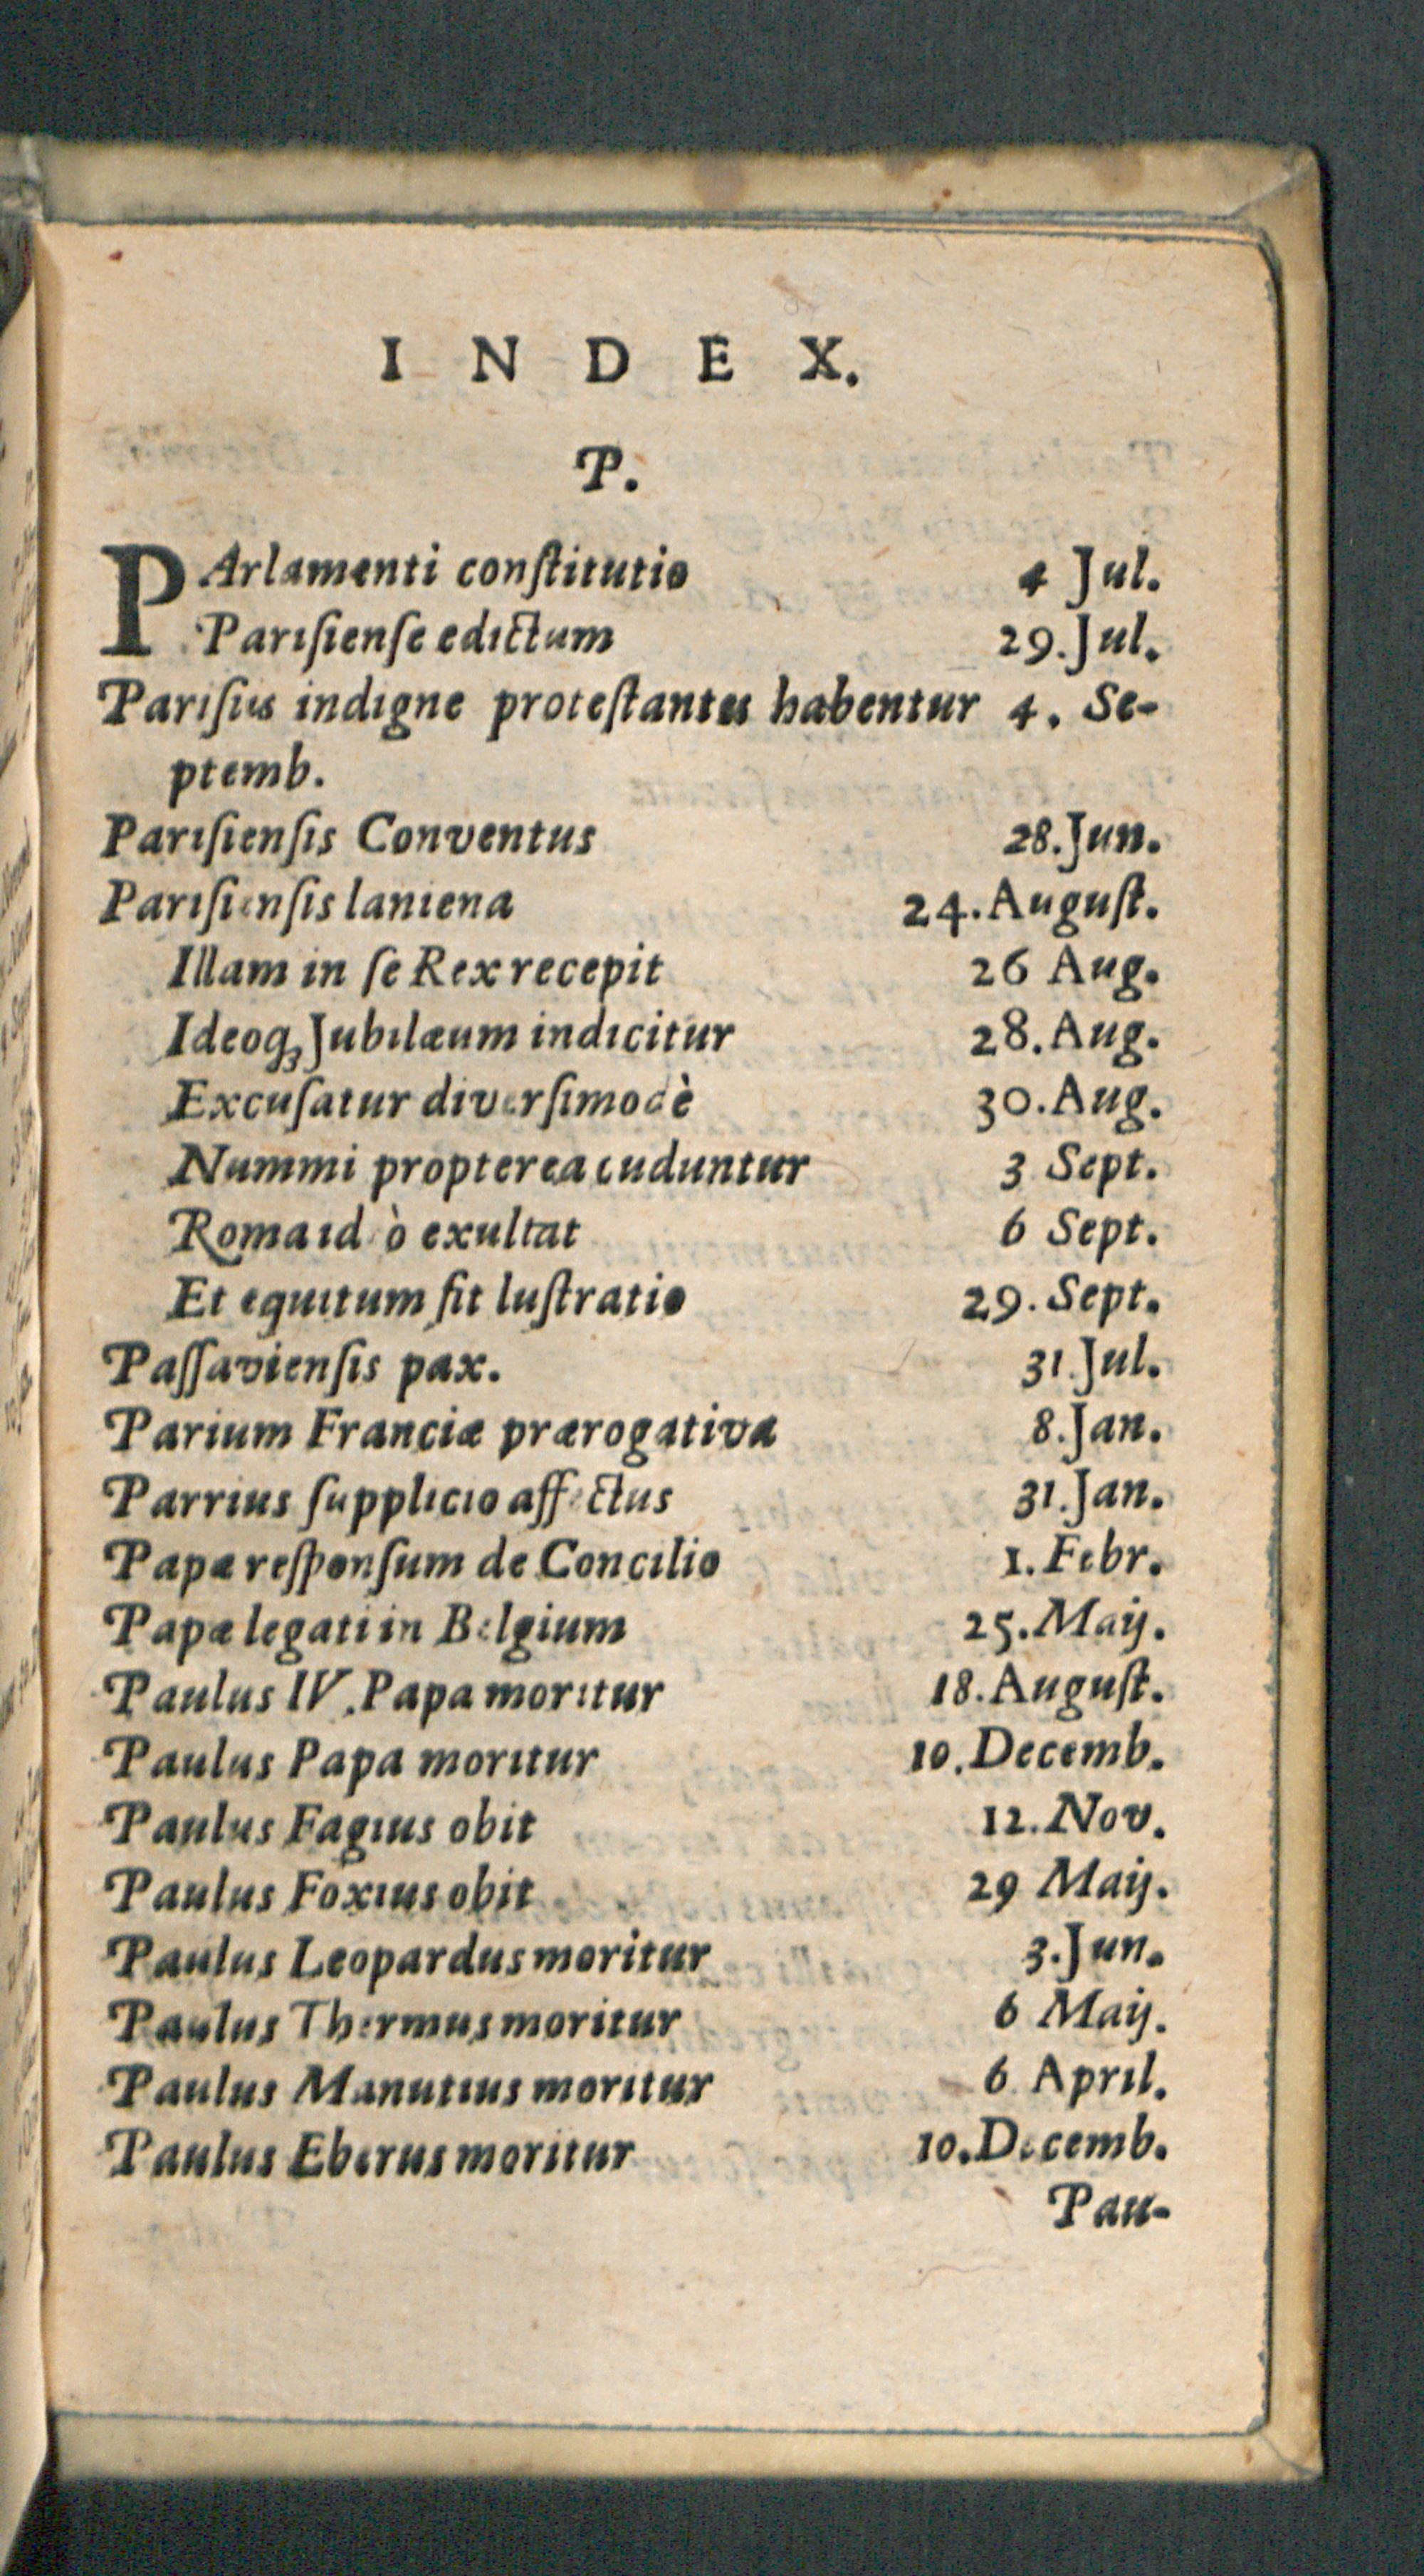 INDEX.
P.
PArlamenti conſtitutio 4 Jul.
Pariſienſe edictum 29. Jul.
Pariſiis indigne proteſtantes habentur 4. Se-
ptemb.
Pariſienſis Conventus 28. Jun.
Pariſienſis laniena 24. Auguſt.
Illam in ſe Rex recepit 26 Aug.
Ideoq; Jubilæum indicitur 28. Aug.
Excuſatur diverſimodè 30. Aug.
Nummi propterea cuduntur 3 Sept.
Roma id ò exultat 6 Sept.
Et equitum fit luſtratio 29. Sept.
Paſſavienſis pax. 31. Jul.
Parium Franciæ prærogativa 8. Jan.
Parrius ſupplicio affectus 31. Jan.
Papæ reſponſum de Concilio 1. Febr.
Papæ legati in Belgium 25. Maij.
Paulus IV. Papa moritur 18. Auguſt.
Paulus Papa moritur 10. Decemb.
Paulus Fagius obit 12. Nov.
Paulus Foxius obit 29 Maij.
Paulus Leopardus moritur 3. Jun.
Paulus Thermus moritur 6 Maij.
Paulus Manutius moritur 6 April.
Paulus Eberus moritur 10. Decemb.
Pau-